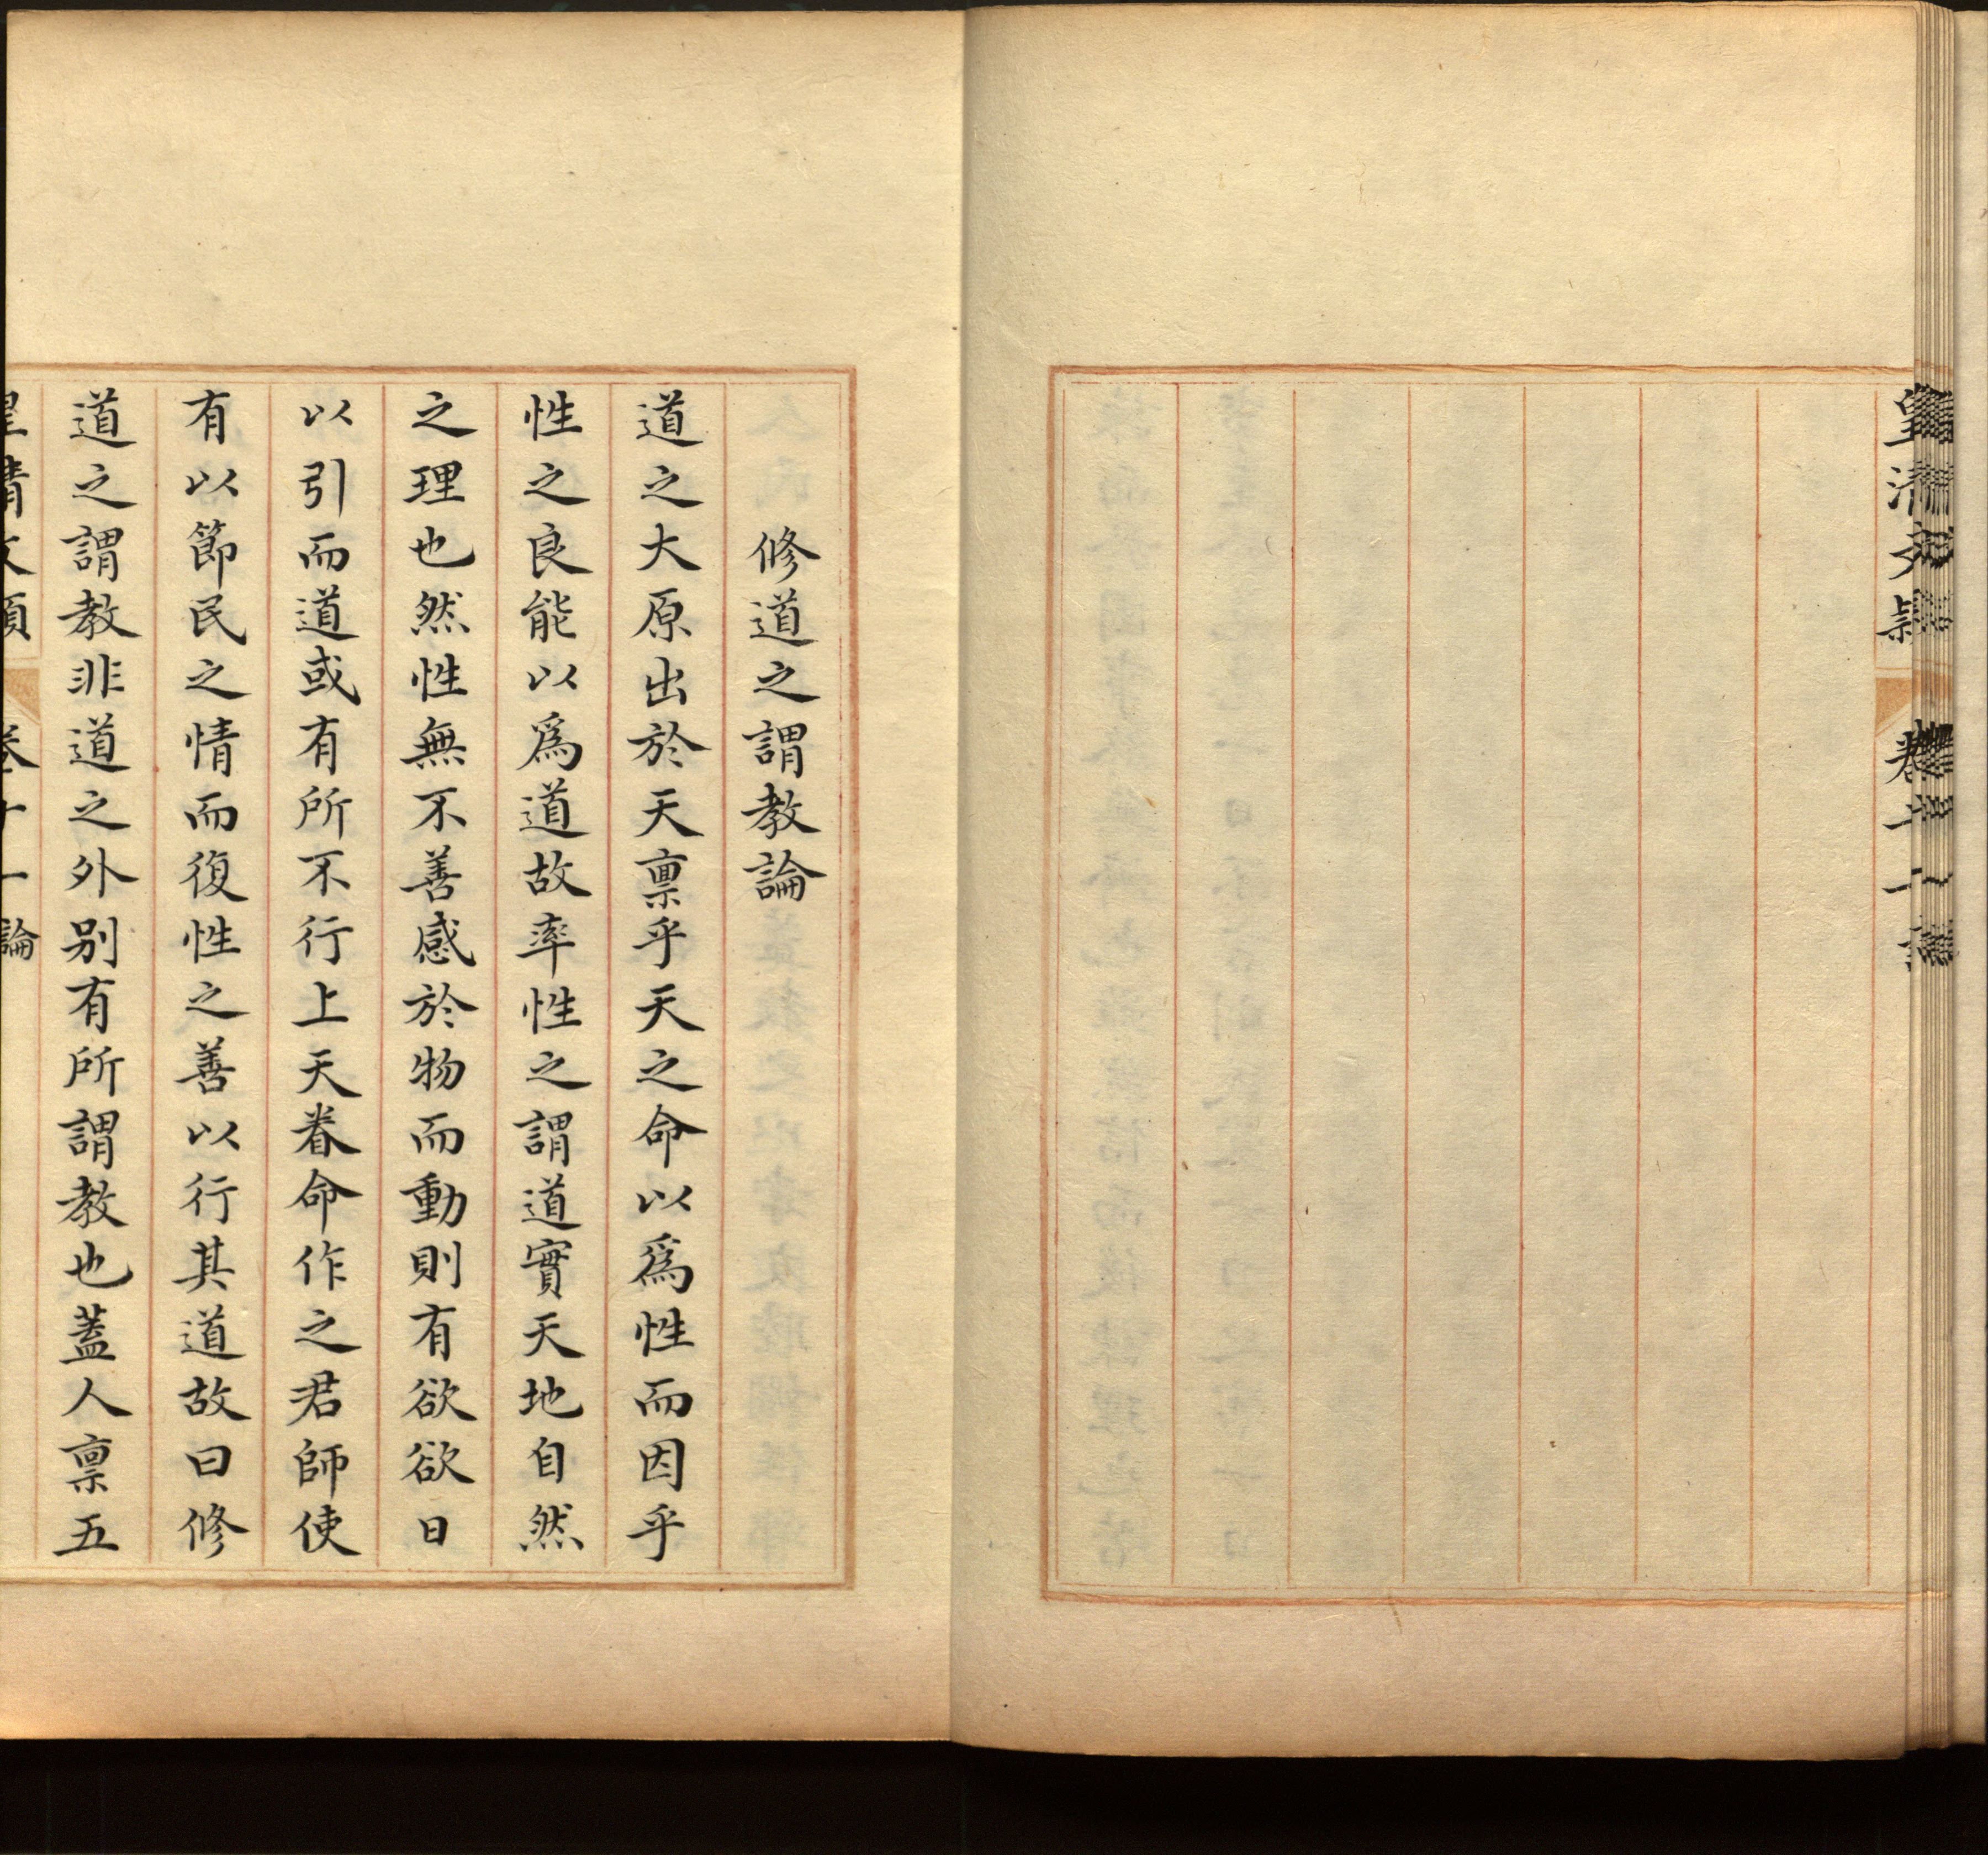 皇清文穎 卷十一 論
修道之謂教論
道之大原出於天禀乎天之命以爲性而因乎
性之良能以爲道故率性之謂道實天地自然
之理也然性無不善感於物而動則有欲欲日
以引而道或有所不行上天眷命作之君師使
有以節民之情而復性之善以行其道故曰修
道之謂教非道之外别有所謂教也蓋人禀五
皇清文穎 卷十一 論